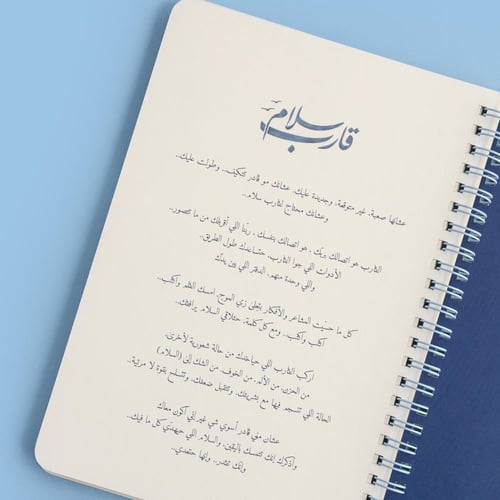 قارب سلام
عشانها صعبة، غير متوقعة، وجديدة عليك، عشانك مو قادر تتكيف.. وطولت عليك..
وعشانك محتاج لقارب سلام..
القارب هو اتصالك بربك، هو اتصالك بنفسك، ربنا اللي أقربلك من ما تتصور..
الأدوات اللي جوا القارب، حتساعدك طول الطريق..
واللي وحدة منهم، الدفتر اللي بين يدك
كل ما حسيت المشاعر والأفكار بتعلى زي الموج، امسك القلم واكتب..
اكتب واكتب.. ومع كل كلمة، حتلاقي السلام يرافقك..
اركب القارب اللي حياخدك من حالة شعورية لأخرى،
من الحزن، من الألم، من الخوف، من الشك إلى (السلام)
الحالة اللي تنسجم فيها مع بشريتك، وتتقبل ضعفك، وتتسلح بقوة لا مرئية..
عشان مني قادر أسوي شي غير إني أكون معاك
وأذكرك إنك تتمسك باليقين، والسلام اللي حيهدي كل ما فيك..
وإنك تقدر.. وإنها حتعدي..